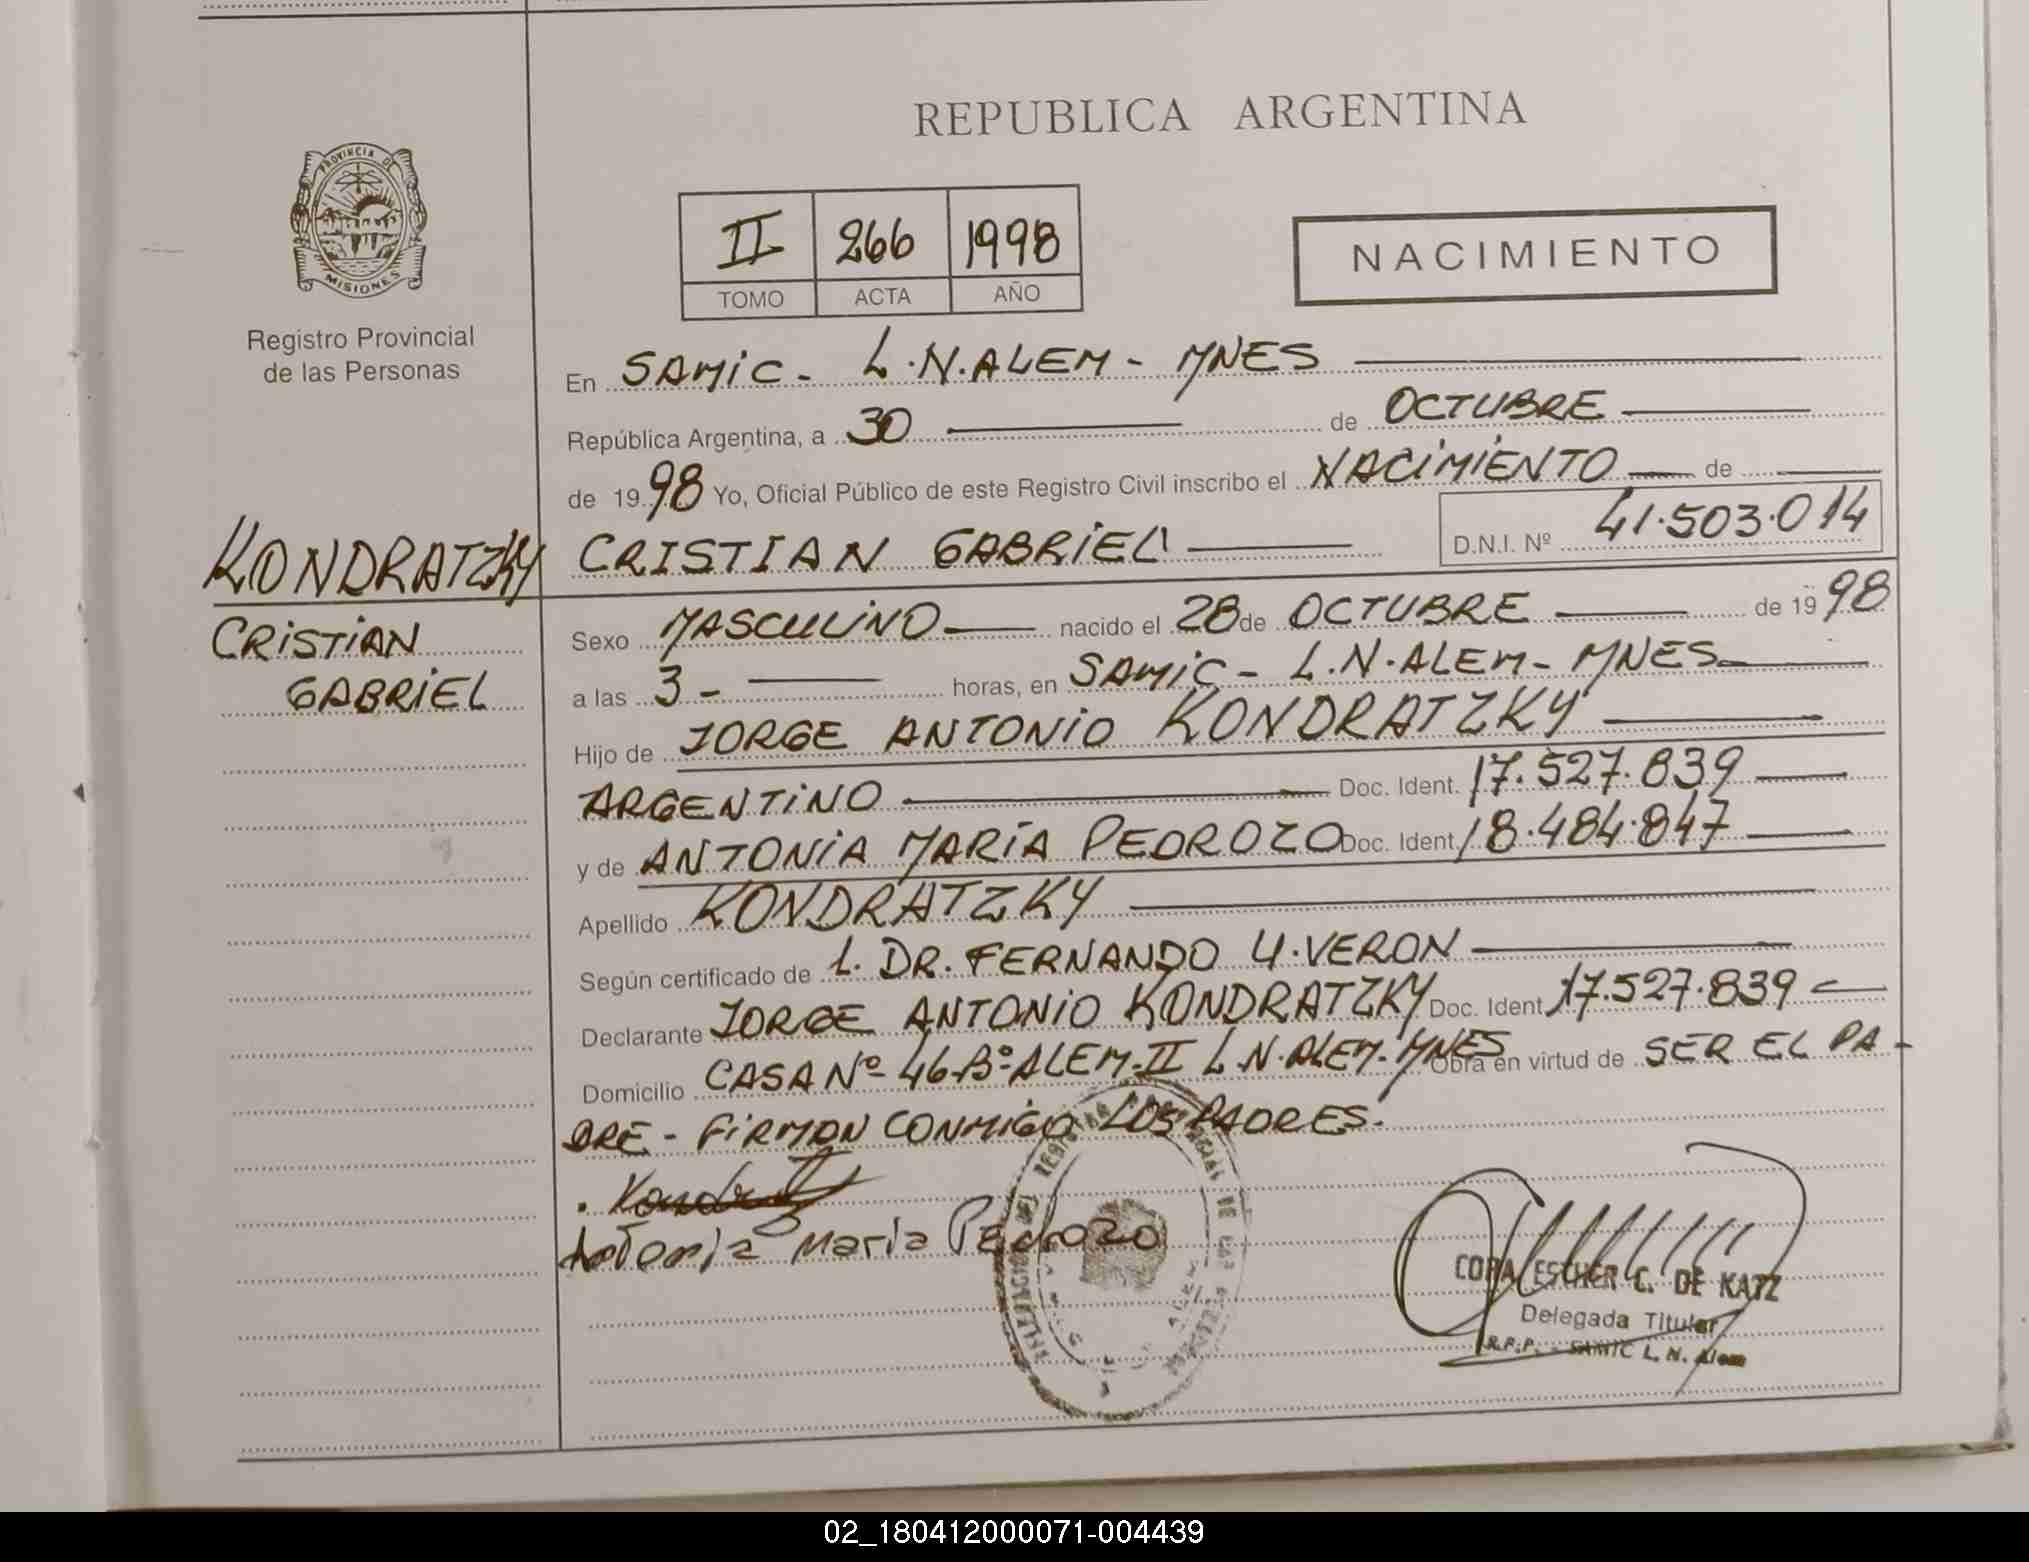 REPUBLICA ARGENTINA
PROVINCIA DE
MISIONES
Registro Provincial
de las Personas
II 266 1998
TOMO ACTA AÑO
NACIMIENTO
En SAMIC - L.N. ALEM - MNES
República Argentina, a 30 de OCTUBRE
de 1998 Yo, Oficial Público de este Registro Civil inscribo el NACIMIENTO de
KONDRATZKY CRISTIAN GABRIEL D.N.I. Nº 41.503.014
CRISTIAN
GABRIEL
Sexo MASCULINO nacido el 28 de OCTUBRE de 1998
a las 3 - horas, en SAMIC - L.N. ALEM - MNES
Hijo de JORGE ANTONIO KONDRATZKY
ARGENTINO Doc. Ident. 17.527.839
y de ANTONIA MARÍA PEDROZO Doc. Ident. 18.484.847
Apellido KONDRATZKY
Según certificado de L. DR. FERNANDO U. VERON
Declarante JORGE ANTONIO KONDRATZKY Doc. Ident. 17.527.839
Domicilio CASA Nº 46-Bº ALEM-II L.N. ALEM-MNES Obra en virtud de SER EL PA-
DRE - FIRMAN CONMIGO LOS PADRES.
Antonia Maria Pedrozo
ESTHER C. DE KATZ
Delegada Titular
R.P.P. - SAMIC L. N. Alem
02_180412000071-004439